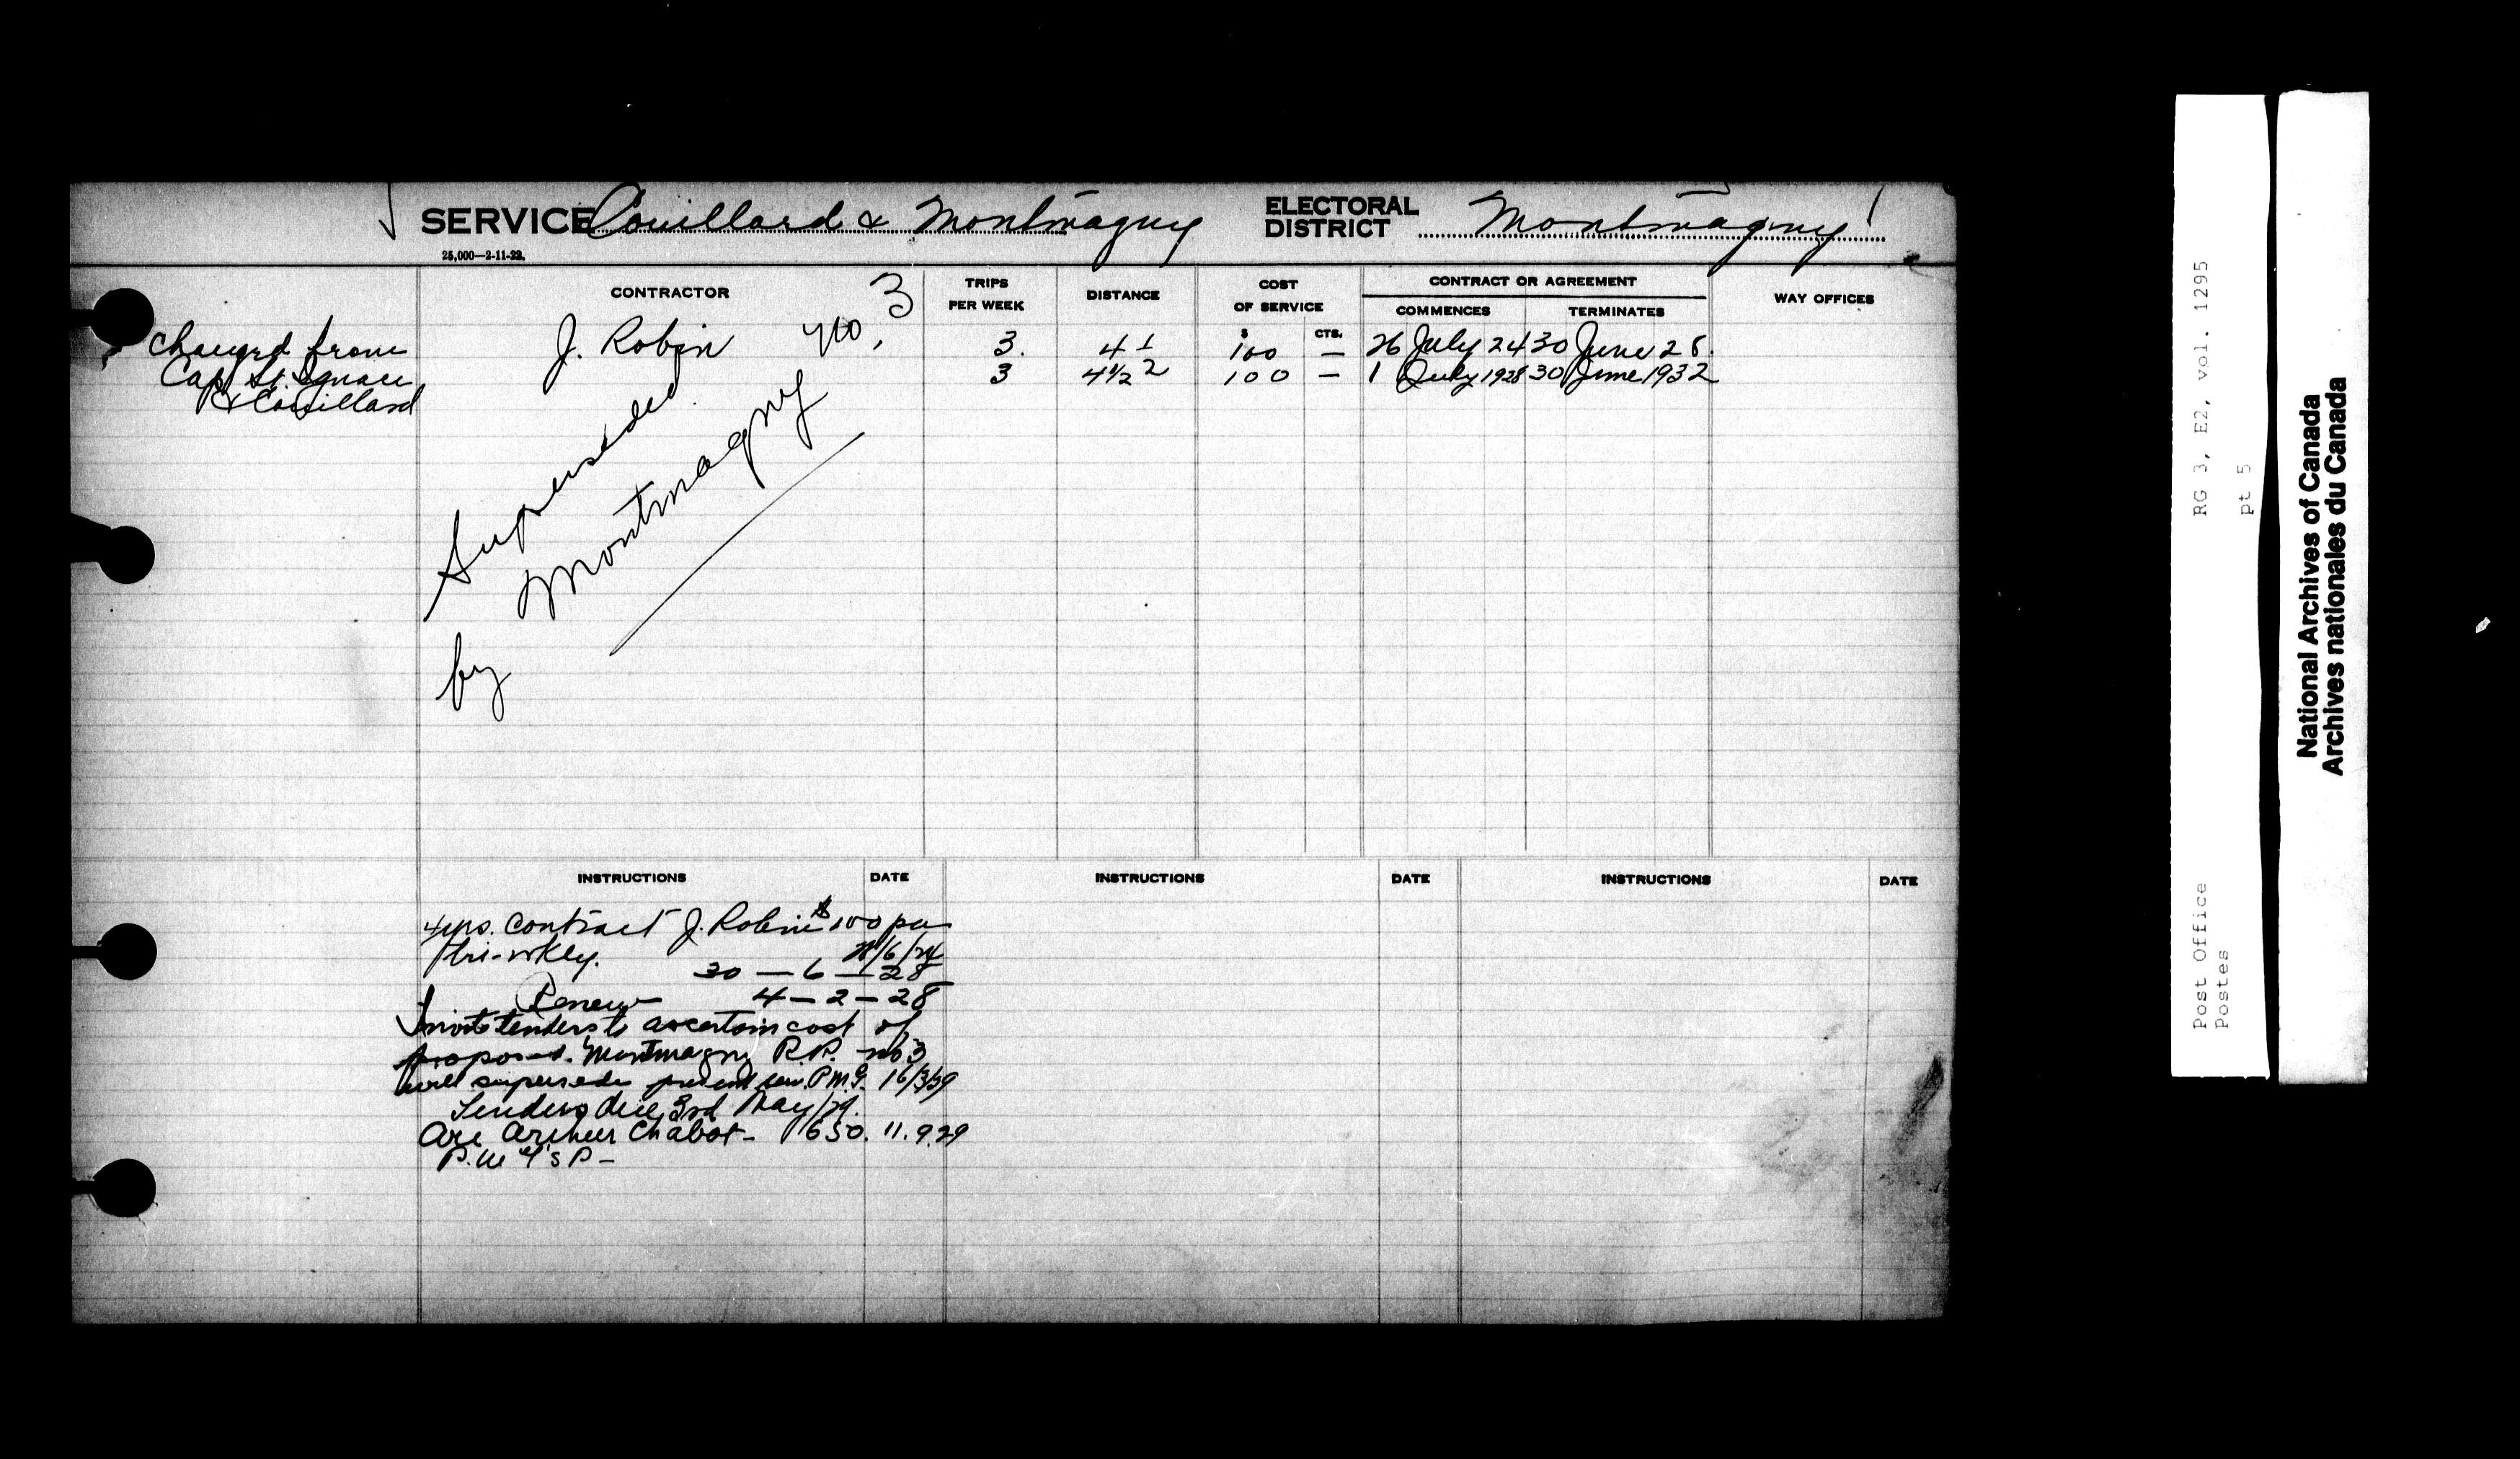 SERVICE Couillard & Montmagny ELECTORAL DISTRICT Montmagny
25,000—2-11-23.
CONTRACTOR TRIPS PER WEEK DISTANCE COST OF SERVICE CONTRACT OR AGREEMENT WAY OFFICES
COMMENCES TERMINATES
$ CTS.
Changed from J. Robin 3. 4 1/2 100 — 26 July 24 30 June 28.
Cap St. Ignace 3 4½ 100 — 1 July 1928 30 June 1932
& Couillard
Superseded
by Montmagny
No. 3
INSTRUCTIONS DATE INSTRUCTIONS DATE INSTRUCTIONS DATE
4 yrs. contract J. Robin $100 pa
tri-wkly. /6/24
30 — 6 — 28
Renew 4 — 2 — 28
Invite tenders to ascertain cost of
proposed Montmagny R.R. no 3
will supersede present ser. P.M.G. 16/3/29
Tenders due 3rd May/29.
Arthur Chabot — 650. 11.9.29
RG 3, E2, vol. 1295
pt 5
Post Office
Postes
National Archives of Canada
Archives nationales du Canada